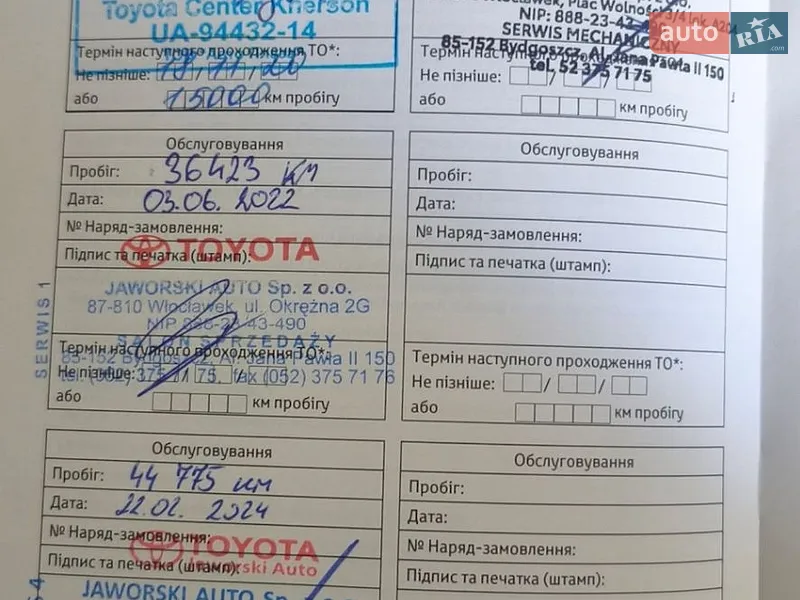 Toyota Center Kherson
UA-94432-14
Термін наступного проходження ТО*:
Не пізніше:
або 15000 км пробігу
Plac Wolności
NIP: 888-23-4
SERWIS MECHANICZNY
85-152 Bydgoszcz, Al. Jana Pawła II 150
tel. 52 375 71 75
Термін наступного проходження
Не пізніше:
або км пробігу
auto RIA.com
Обслуговування
Пробіг: 36423 км
Дата: 03.06.2022
№ Наряд-замовлення:
TOYOTA
Підпис та печатка (штамп):
JAWORSKI AUTO Sp. z o.o.
87-810 Włocławek, ul. Okrężna 2G
NIP 888-23-43-490
SALON SPRZEDAŻY
85-152 Bydgoszcz, Al. Jana Pawła II 150
tel. (052) 375 71 75, fax (052) 375 71 76
SERWIS 1
Термін наступного проходження ТО*:
Не пізніше:
або км пробігу
Обслуговування
Пробіг:
Дата:
№ Наряд-замовлення:
Підпис та печатка (штамп):
Термін наступного проходження ТО*:
Не пізніше: / /
або км пробігу
Обслуговування
Пробіг: 44 775 км
Дата: 22.02.2024
№ Наряд-замовлення:
TOYOTA
Jaworski Auto
Підпис та печатка (штамп):
JAWORSKI AUTO Sp.
Обслуговування
Пробіг:
Дата:
№ Наряд-замовлення:
Підпис та печатка (штамп):